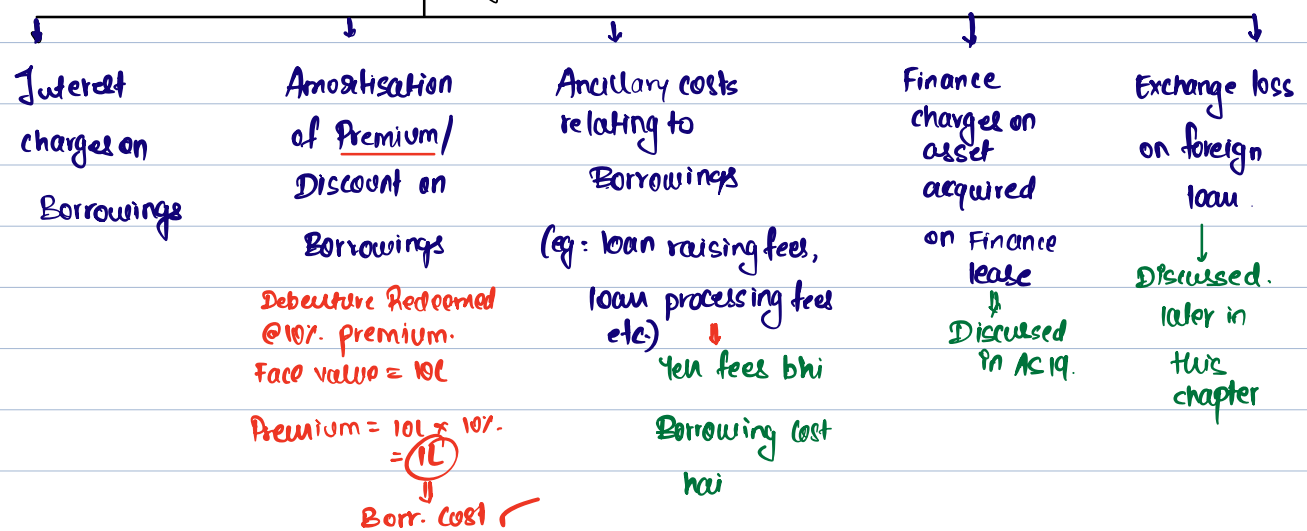 Interest
charges on
Borrowings
Amortisation
of Premium/
Discount on
Borrowings
Debenture Redeemed
@10% premium.
Face value = 10L
Premium = 10L x 10%.
= 1L
Borr. cost ✓
Ancillary costs
relating to
Borrowings
(eg: loan raising fees,
loan processing fees
etc.)
Yeh fees bhi
Borrowing cost
hai
Finance
charges on
asset
acquired
on Finance
lease
Discussed
in AS 19.
Exchange loss
on foreign
loan.
Discussed.
later in
this
chapter